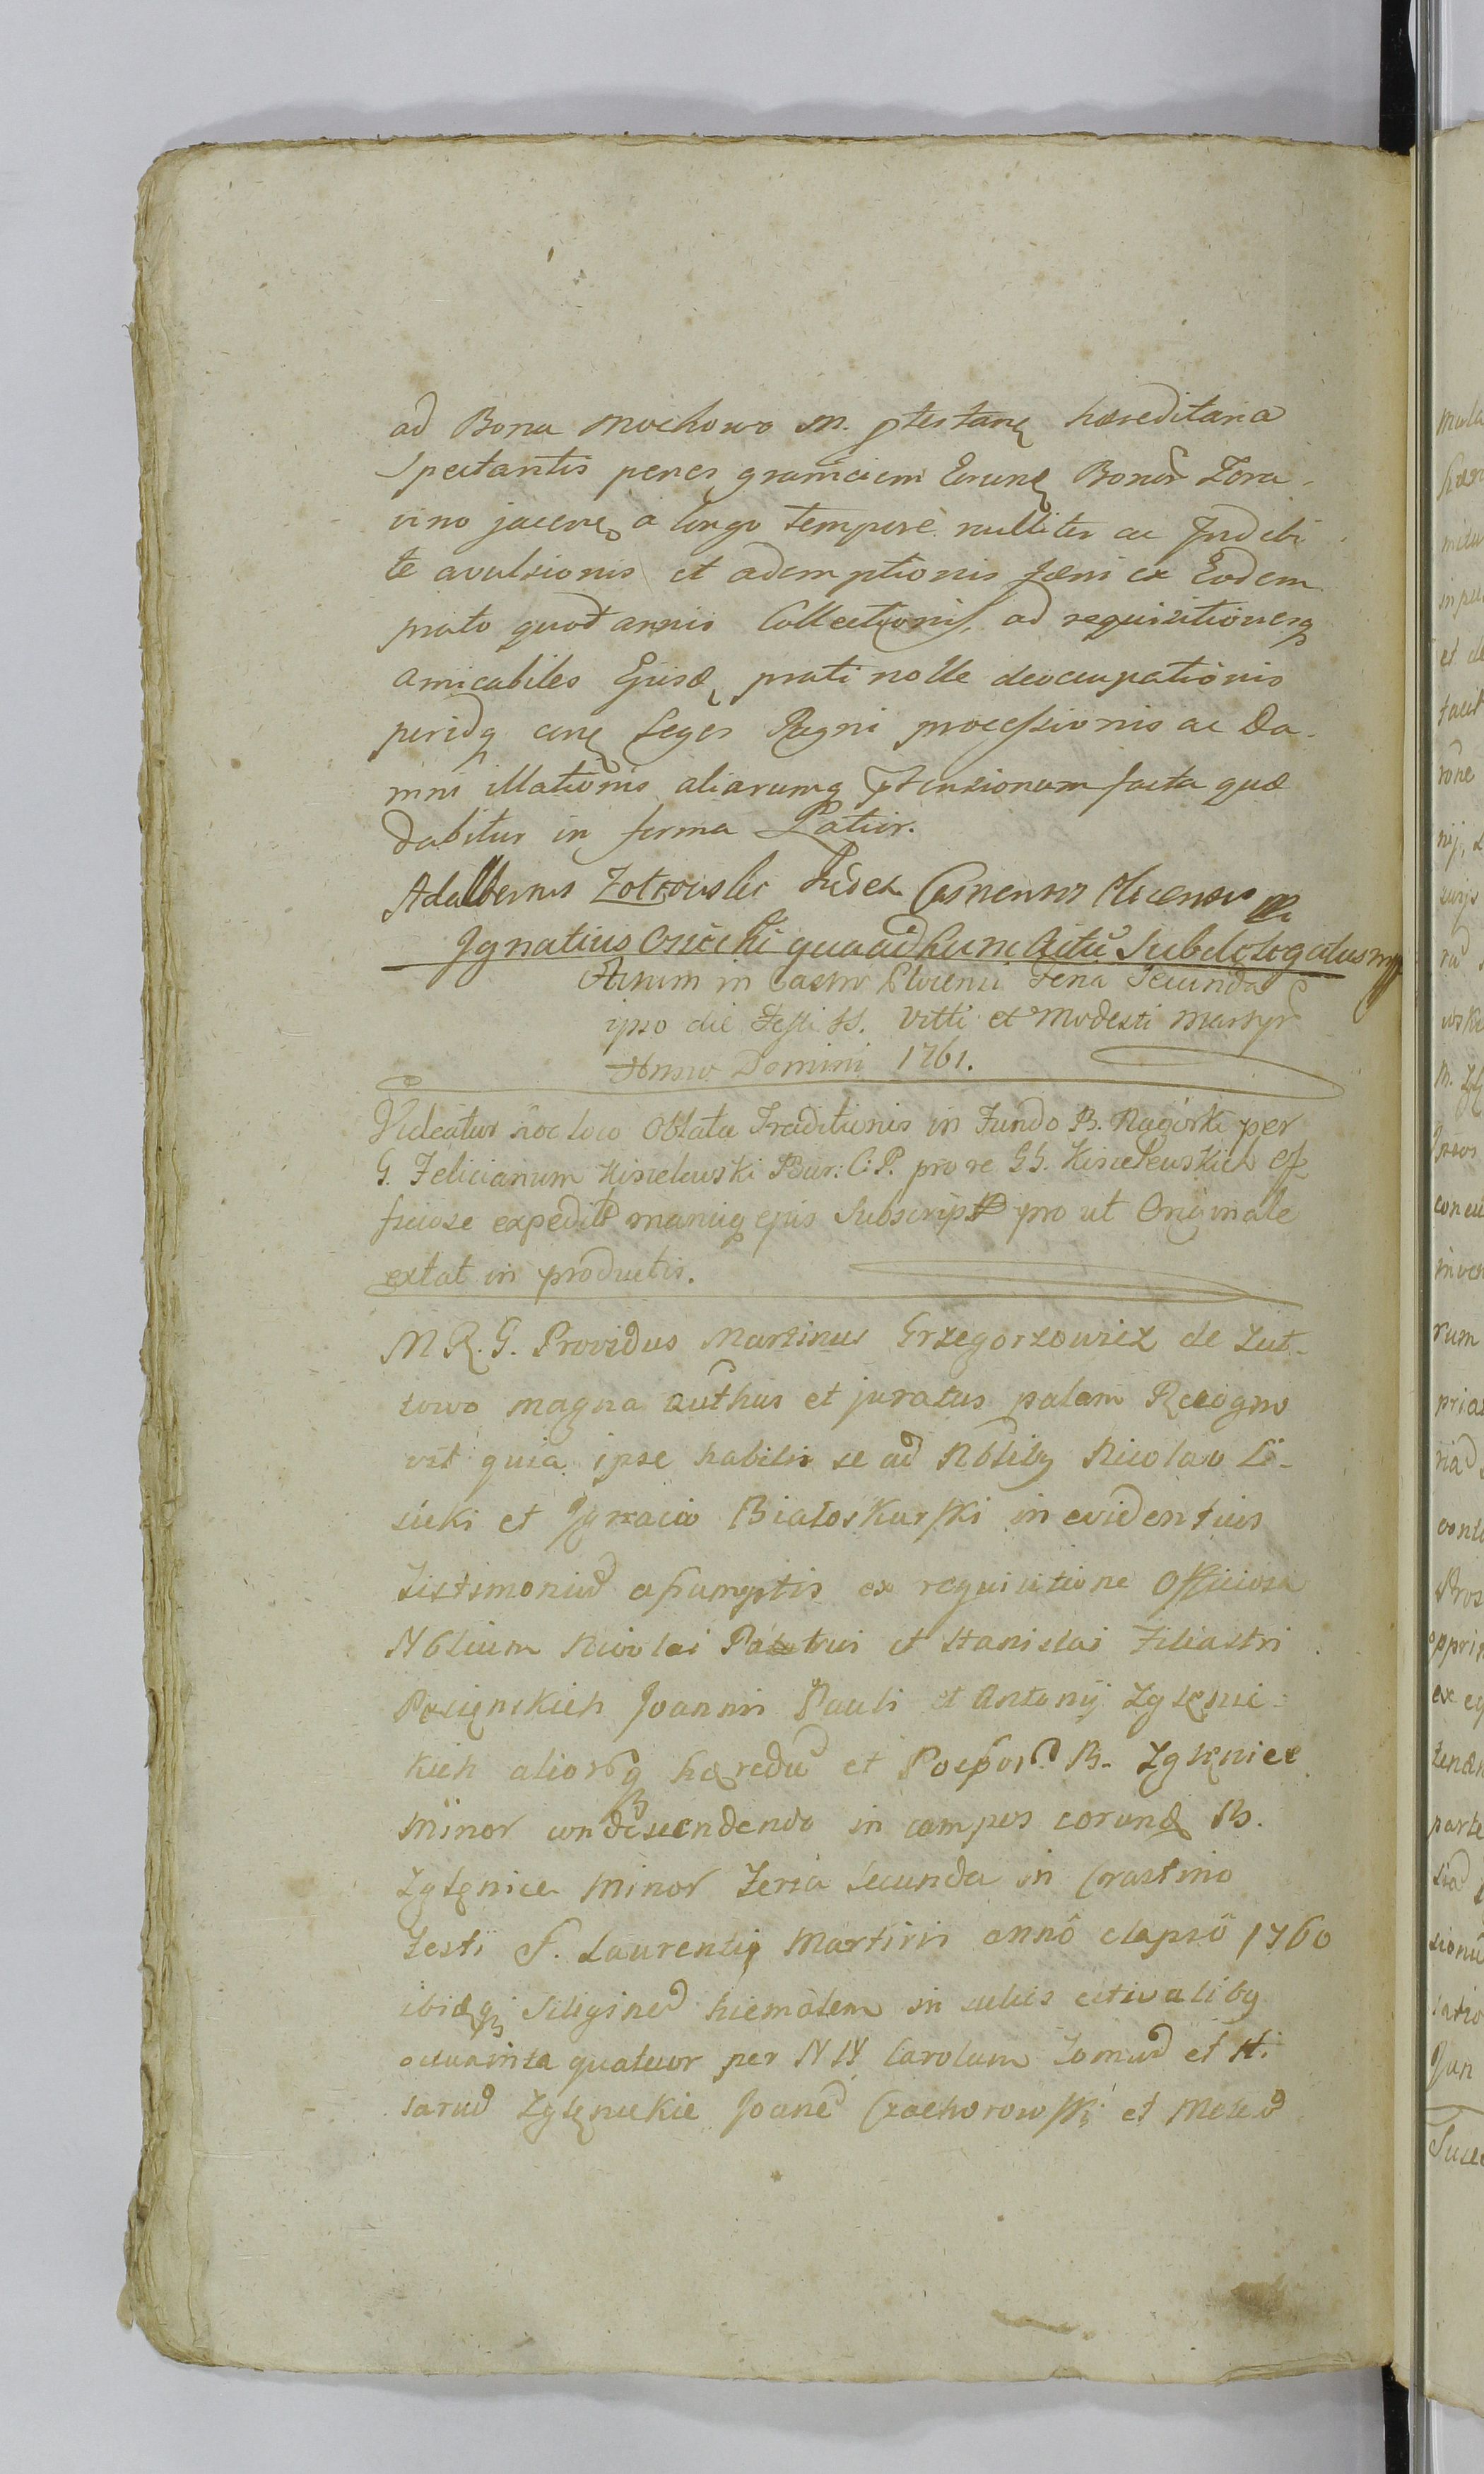 ad Bona Mochowo M. ptestanę hæreditaria
Spectantis penes graniciem Eorunę Bonor Zora-
vino jacen, a longo tempore nulliter ac Indebi
te avulsionis et ademptionis fæni ex Eodem
prato quot annis Collectionis, ad requisitionesq
amicabiles Ejusd prati nolle deoccupationis
peridq cunę Leges Regni processionis ac Da-
mni illationis aliarumq ptensionum facta quæ
dabitur in forma Latior.
Adalbertus Zotrowski Judex Casnensis Plicensis mp
Ignatius Osiecki qua ad hunc Actũ Subdelegatus mp
Actum in Castro Plocensi Feria Secunda
ipso die Festi SS. Vitti et Modesti Martyr
Anno Domini 1761.
Videatur hoc loco Oblata Traditionis in Fundo B. Nagórki per
G. Felicianum Kisielewski Bur: C: P. pro re GG. Kisielewskich of
ficiose expedit manuq ejus Subscript pro ut Originale
extat in productis.
M R. G. Providus Martinus Grzegorzowicz de Lut-
towo magna authus et juratus palam Recogno
vit quia ipse habitis se ad Nbiliby Nicolao Li-
sicki et Ignacio Białoskurski in evidentius
Testimoniũ assumptis ex requisitione Officiosa
Nbilium Nicolai Patrui et Stanislai Filiastri
Joannis Pauli et Antonij Zglenic-
kich aliorq hæredũ et Possor. B. Zglenice
Minor condescendendo in campos eorund B.
Zglęnice Minor Feria Secunda in Crastino
Festi S. Laurentij Martiris annô elapsô 1760
ibidq Siligineũ hiemalem in sulcis estivaliby
octuaginta quatuor per NN Carolum Tomaũ et
Zglęnickie Joanẽ Czachorowski et